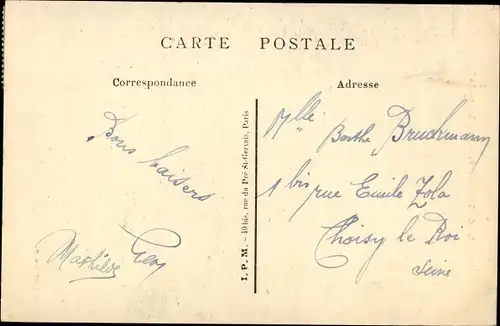 CARTE POSTALE
Correspondance
Bons baisers
Mathilde
Adresse
Mlle
Berthe Bruckmann
1 bis rue Emile Zola
Choisy le Roi
Seine
I. P. M. - 40 bis, rue du Pré St-Gervais, Paris